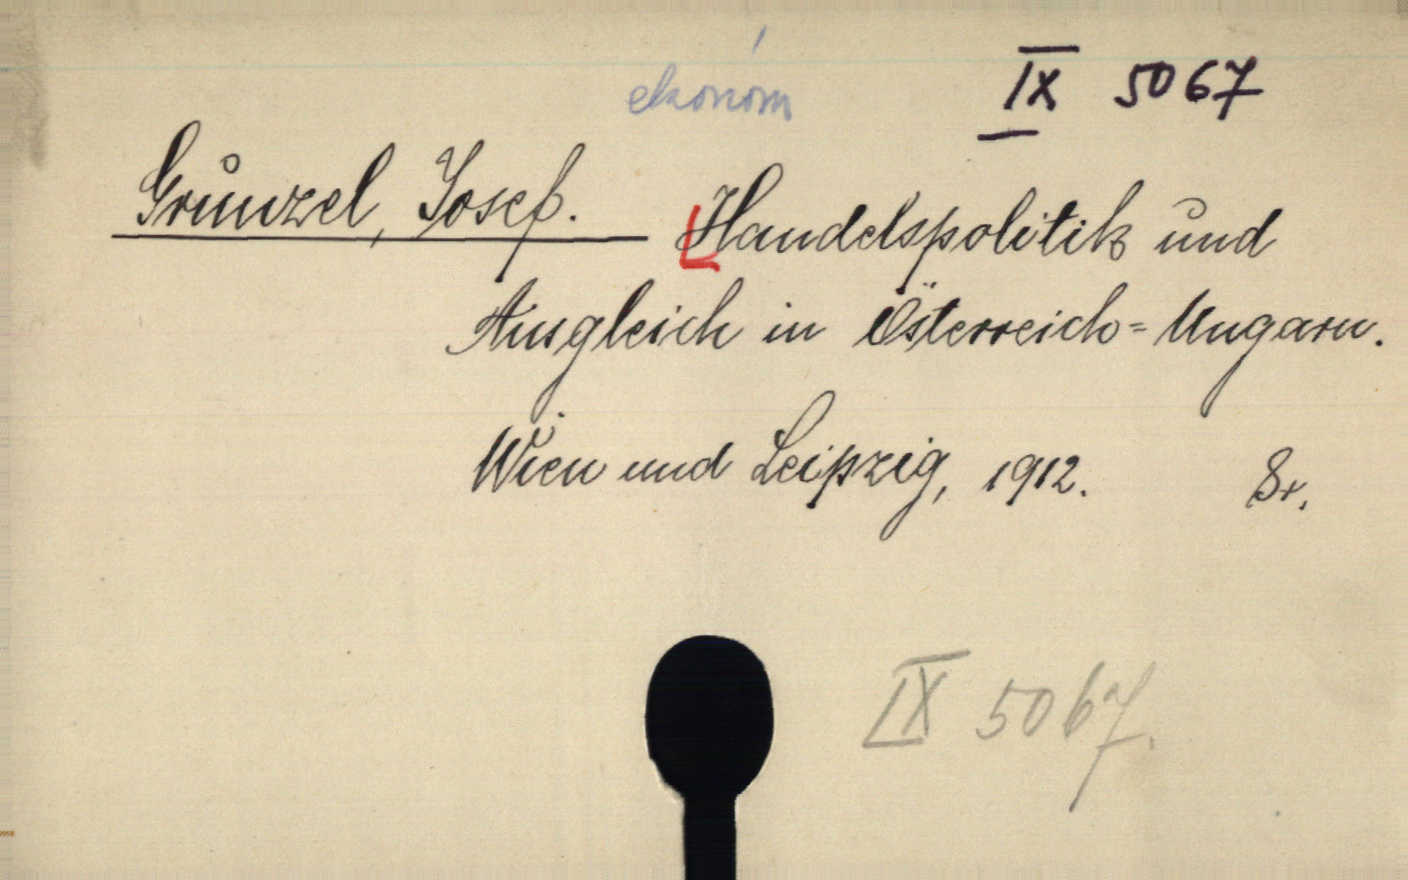 ekonóm
IX 5067
Grünzel, Josef. Handelspolitik und
Ausgleich in Österreich=Ungarn.
Wien und Leipzig, 1912.
IX 5067.